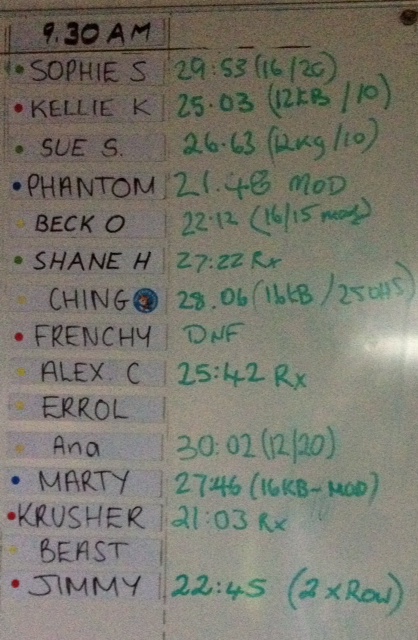 9.30 AM
SOPHIE S 29:53 (16/20)
KELLIE K 25.03 (12KB/10)
SUE S. 26.63 (12Kg/10)
PHANTOM 21.48 MOD
BECK O 22:12 (16/15 mod)
SHANE H 27:22 Rx
CHING 28.06 (16KB/25OHS)
FRENCHY DNF
ALEX C 25:42 Rx
ERROL
Ana 30:02 (12/20)
MARTY 27:46 (16KB-MOD)
KRUSHER 21:03 Rx
BEAST
JIMMY 22:45 (2xRow)